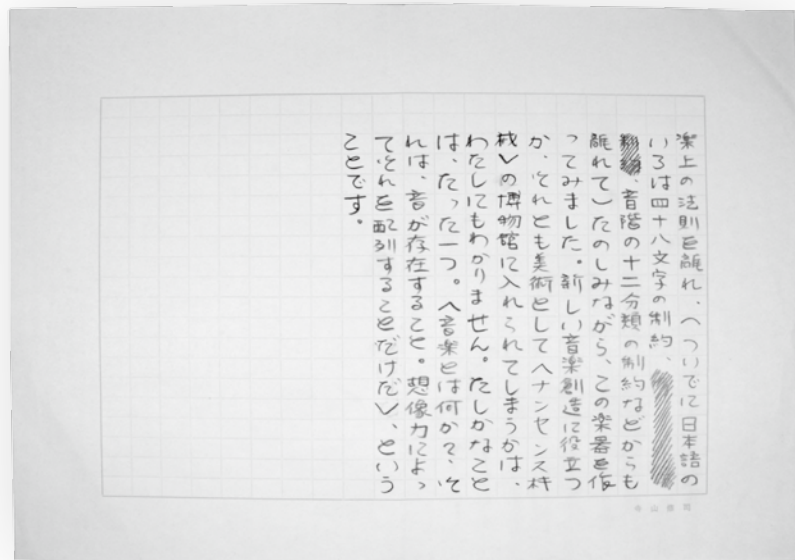 楽上の法則を離れ、〈ついでに日本語の
いろは四十八文字の制約、
、音階の十二分類の制約などからも
離れて〉たのしみながら、この楽器を作
ってみました。新しい音楽創造に役立つ
か、それとも美術として〈ナンセンス機
械〉の博物館に入れられてしまうかは、
わたしにもわかりません。たしかなこと
は、たった一つ。〈音楽とは何か?、そ
れは、音が存在すること。想像力によっ
てそれを配列することだけだ〉、という
ことです。
寺山修司